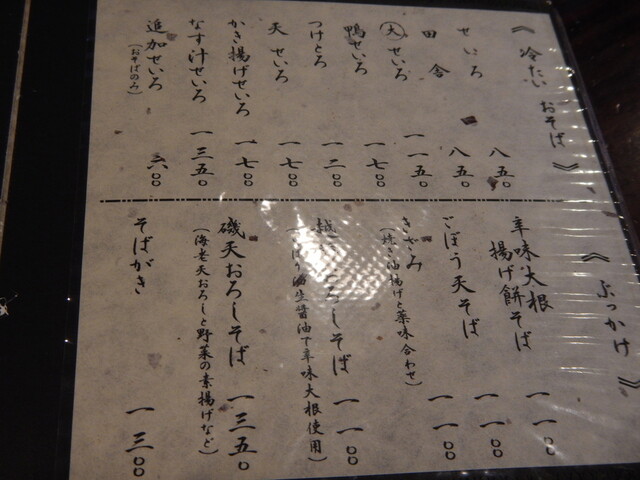 《冷たい おそば》
せいろ 八五〇
田舎 八五〇
大せいろ 一一五〇
鴨せいろ 一七〇〇
つけとろ 一二〇〇
天せいろ 一七〇〇
かき揚げせいろ 一七〇〇
なす汁せいろ 一三五〇
追加せいろ 六〇〇
(おそばのみ)
《ぶっかけ》
辛味大根
揚げ餅そば 一一〇〇
ごぼう天そば 一一〇〇
きざみ 一一〇〇
(焼き油揚げと薬味合わせ)
越 ろしそば 一一〇〇
生醤油で辛味大根使用)
磯天おろしそば 一三五〇
(海老天おろしと野菜の素揚げなど)
そばがき 一三〇〇